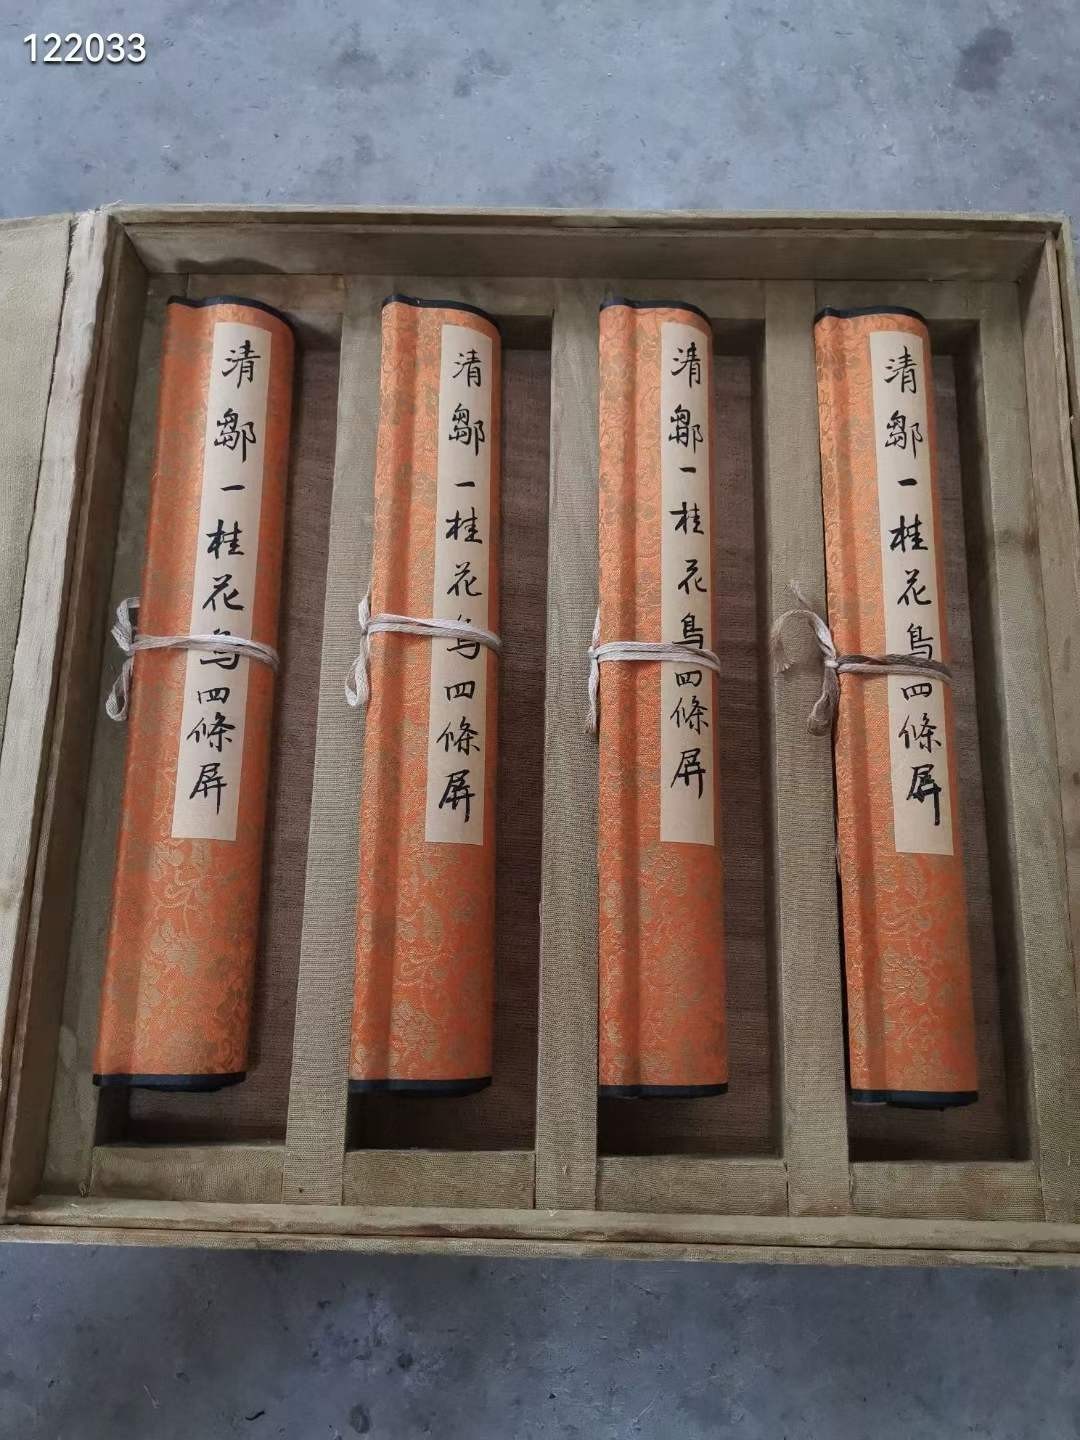 122033
清鄒一桂花鳥四條屏
清鄒一桂花鳥四條屏
清鄒一桂花鳥四條屏
清鄒一桂花鳥四條屏